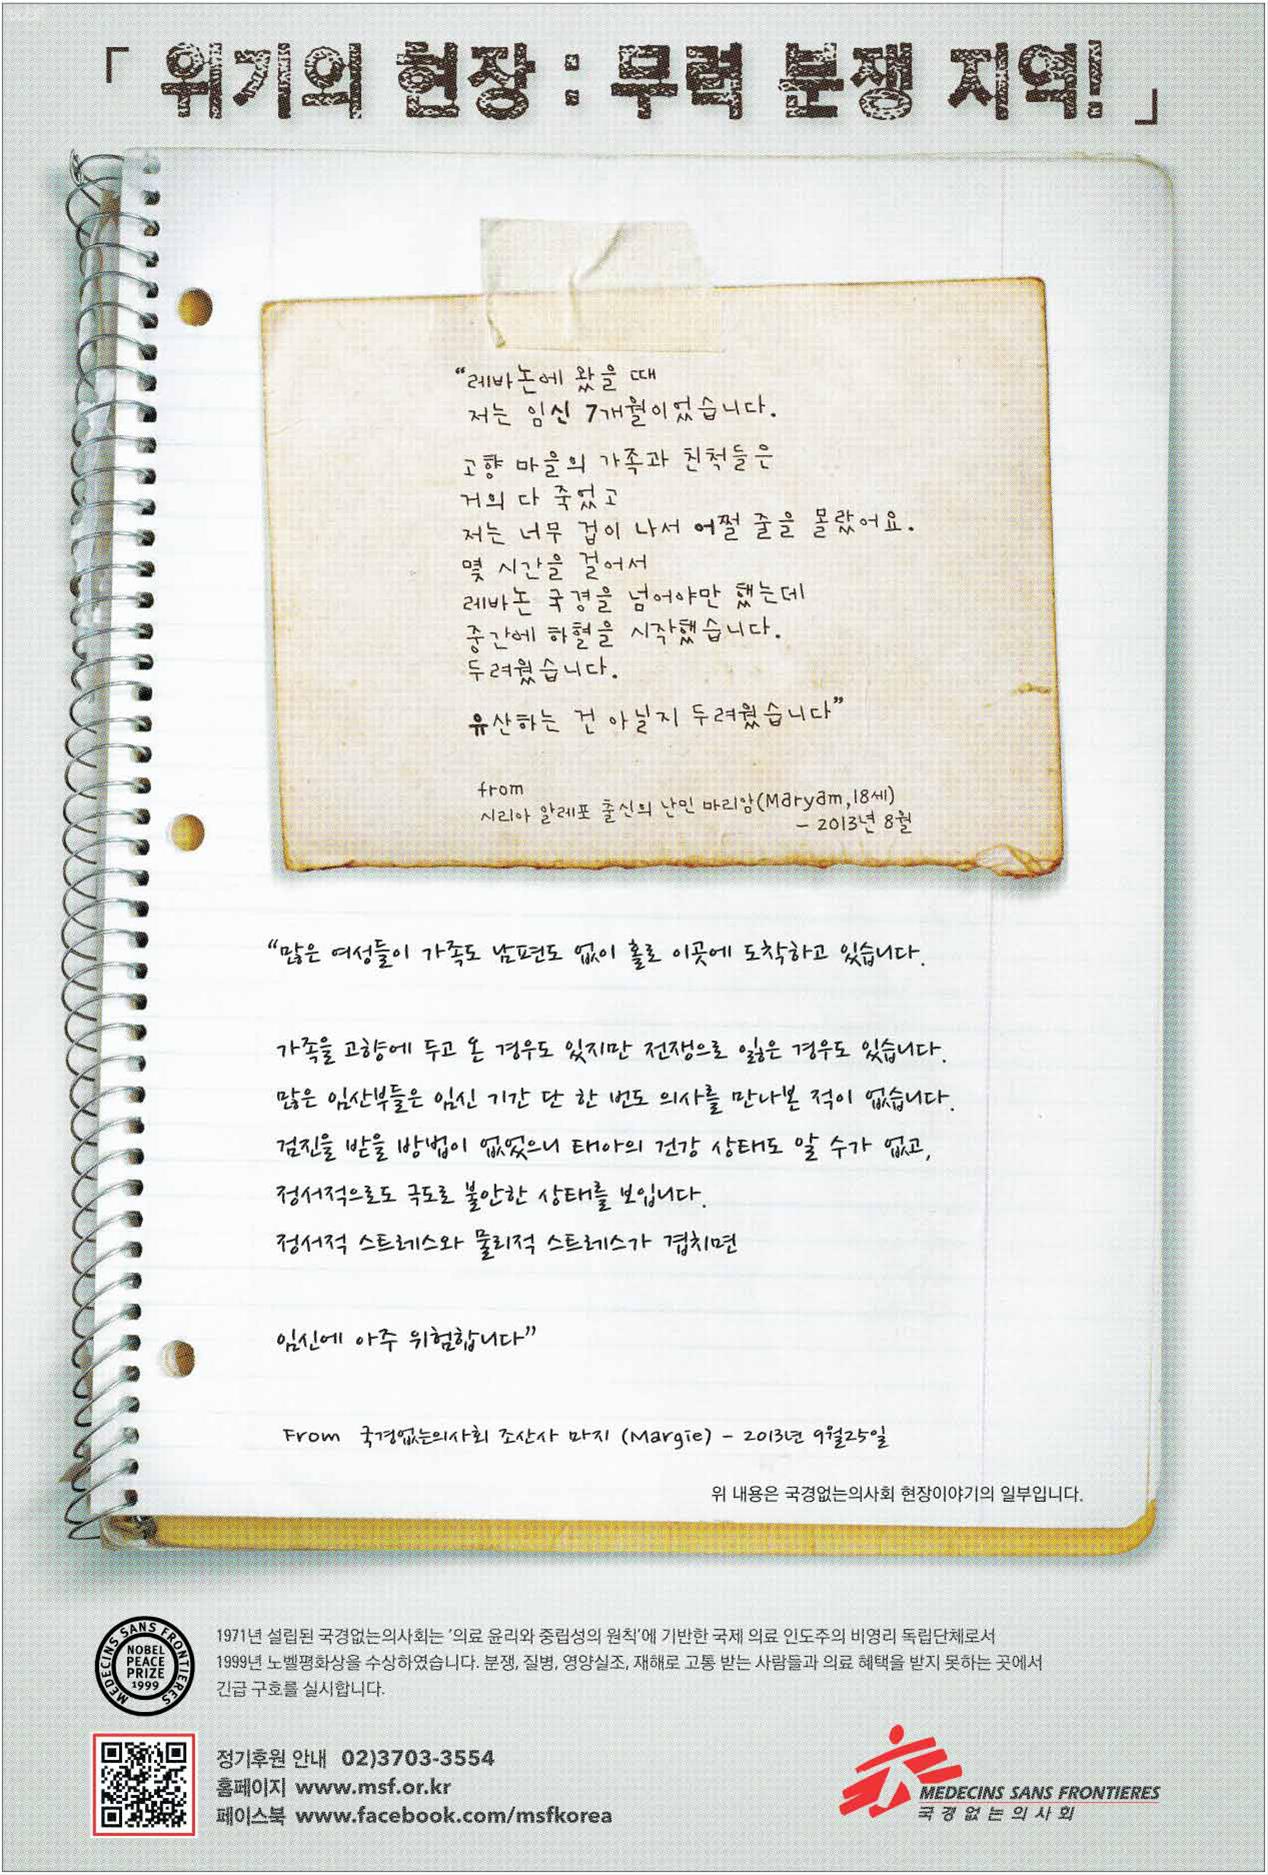 「위기의 현장 : 무력 분쟁 지역!」
“레바논에 왔을 때
저는 임신 7개월이었습니다.
고향 마을의 가족과 친척들은
거의 다 죽었고
저는 너무 겁이 나서 어쩔 줄을 몰랐어요.
몇 시간을 걸어서
레바논 국경을 넘어야만 했는데
중간에 하혈을 시작했습니다.
두려웠습니다.
유산하는 건 아닐지 두려웠습니다”
from
시리아 알레포 출신의 난민 마리암(Maryam,18세)
- 2013년 8월
“많은 여성들이 가족도 남편도 없이 홀로 이곳에 도착하고 있습니다.
가족을 고향에 두고 온 경우도 있지만 전쟁으로 잃은 경우도 있습니다.
많은 임산부들은 임신 기간 단 한 번도 의사를 만나본 적이 없습니다.
검진을 받을 방법이 없었으니 태아의 건강 상태도 알 수가 없고,
정서적으로도 극도로 불안한 상태를 보입니다.
정서적 스트레스와 물리적 스트레스가 겹치면
임신에 아주 위험합니다”
From 국경없는의사회 조산사 마지 (Margie) - 2013년 9월25일
위 내용은 국경없는의사회 현장이야기의 일부입니다.
MEDECINS SANS FRONTIERES
NOBEL
PEACE
PRIZE
1999
1971년 설립된 국경없는의사회는 '의료 윤리와 중립성의 원칙'에 기반한 국제 의료 인도주의 비영리 독립단체로서
1999년 노벨평화상을 수상하였습니다. 분쟁, 질병, 영양실조, 재해로 고통 받는 사람들과 의료 혜택을 받지 못하는 곳에서
긴급 구호를 실시합니다.
정기후원 안내 02)3703-3554
홈페이지 www.msf.or.kr
페이스북 www.facebook.com/msfkorea
MEDECINS SANS FRONTIERES
국경없는의사회